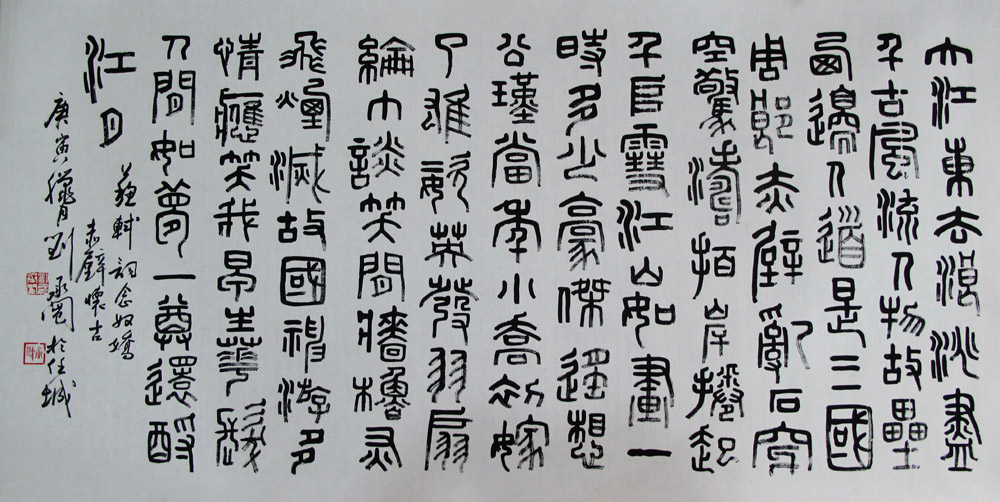 大江東去浪淘盡
千古風流人物故壘
西邊人道是三國
周郎赤壁亂石穿
空驚濤拍岸捲起
千堆雪江山如畫一
時多少豪傑遙想
公瑾當年小喬初嫁
了雄姿英發羽扇
綸巾談笑間牆櫓灰
飛煙滅故國神游多
情應笑我早生華髮
人間如夢一尊還酹
江月
蘇軾詞念奴嬌
赤壁懷古
庚寅臘月劉於任城